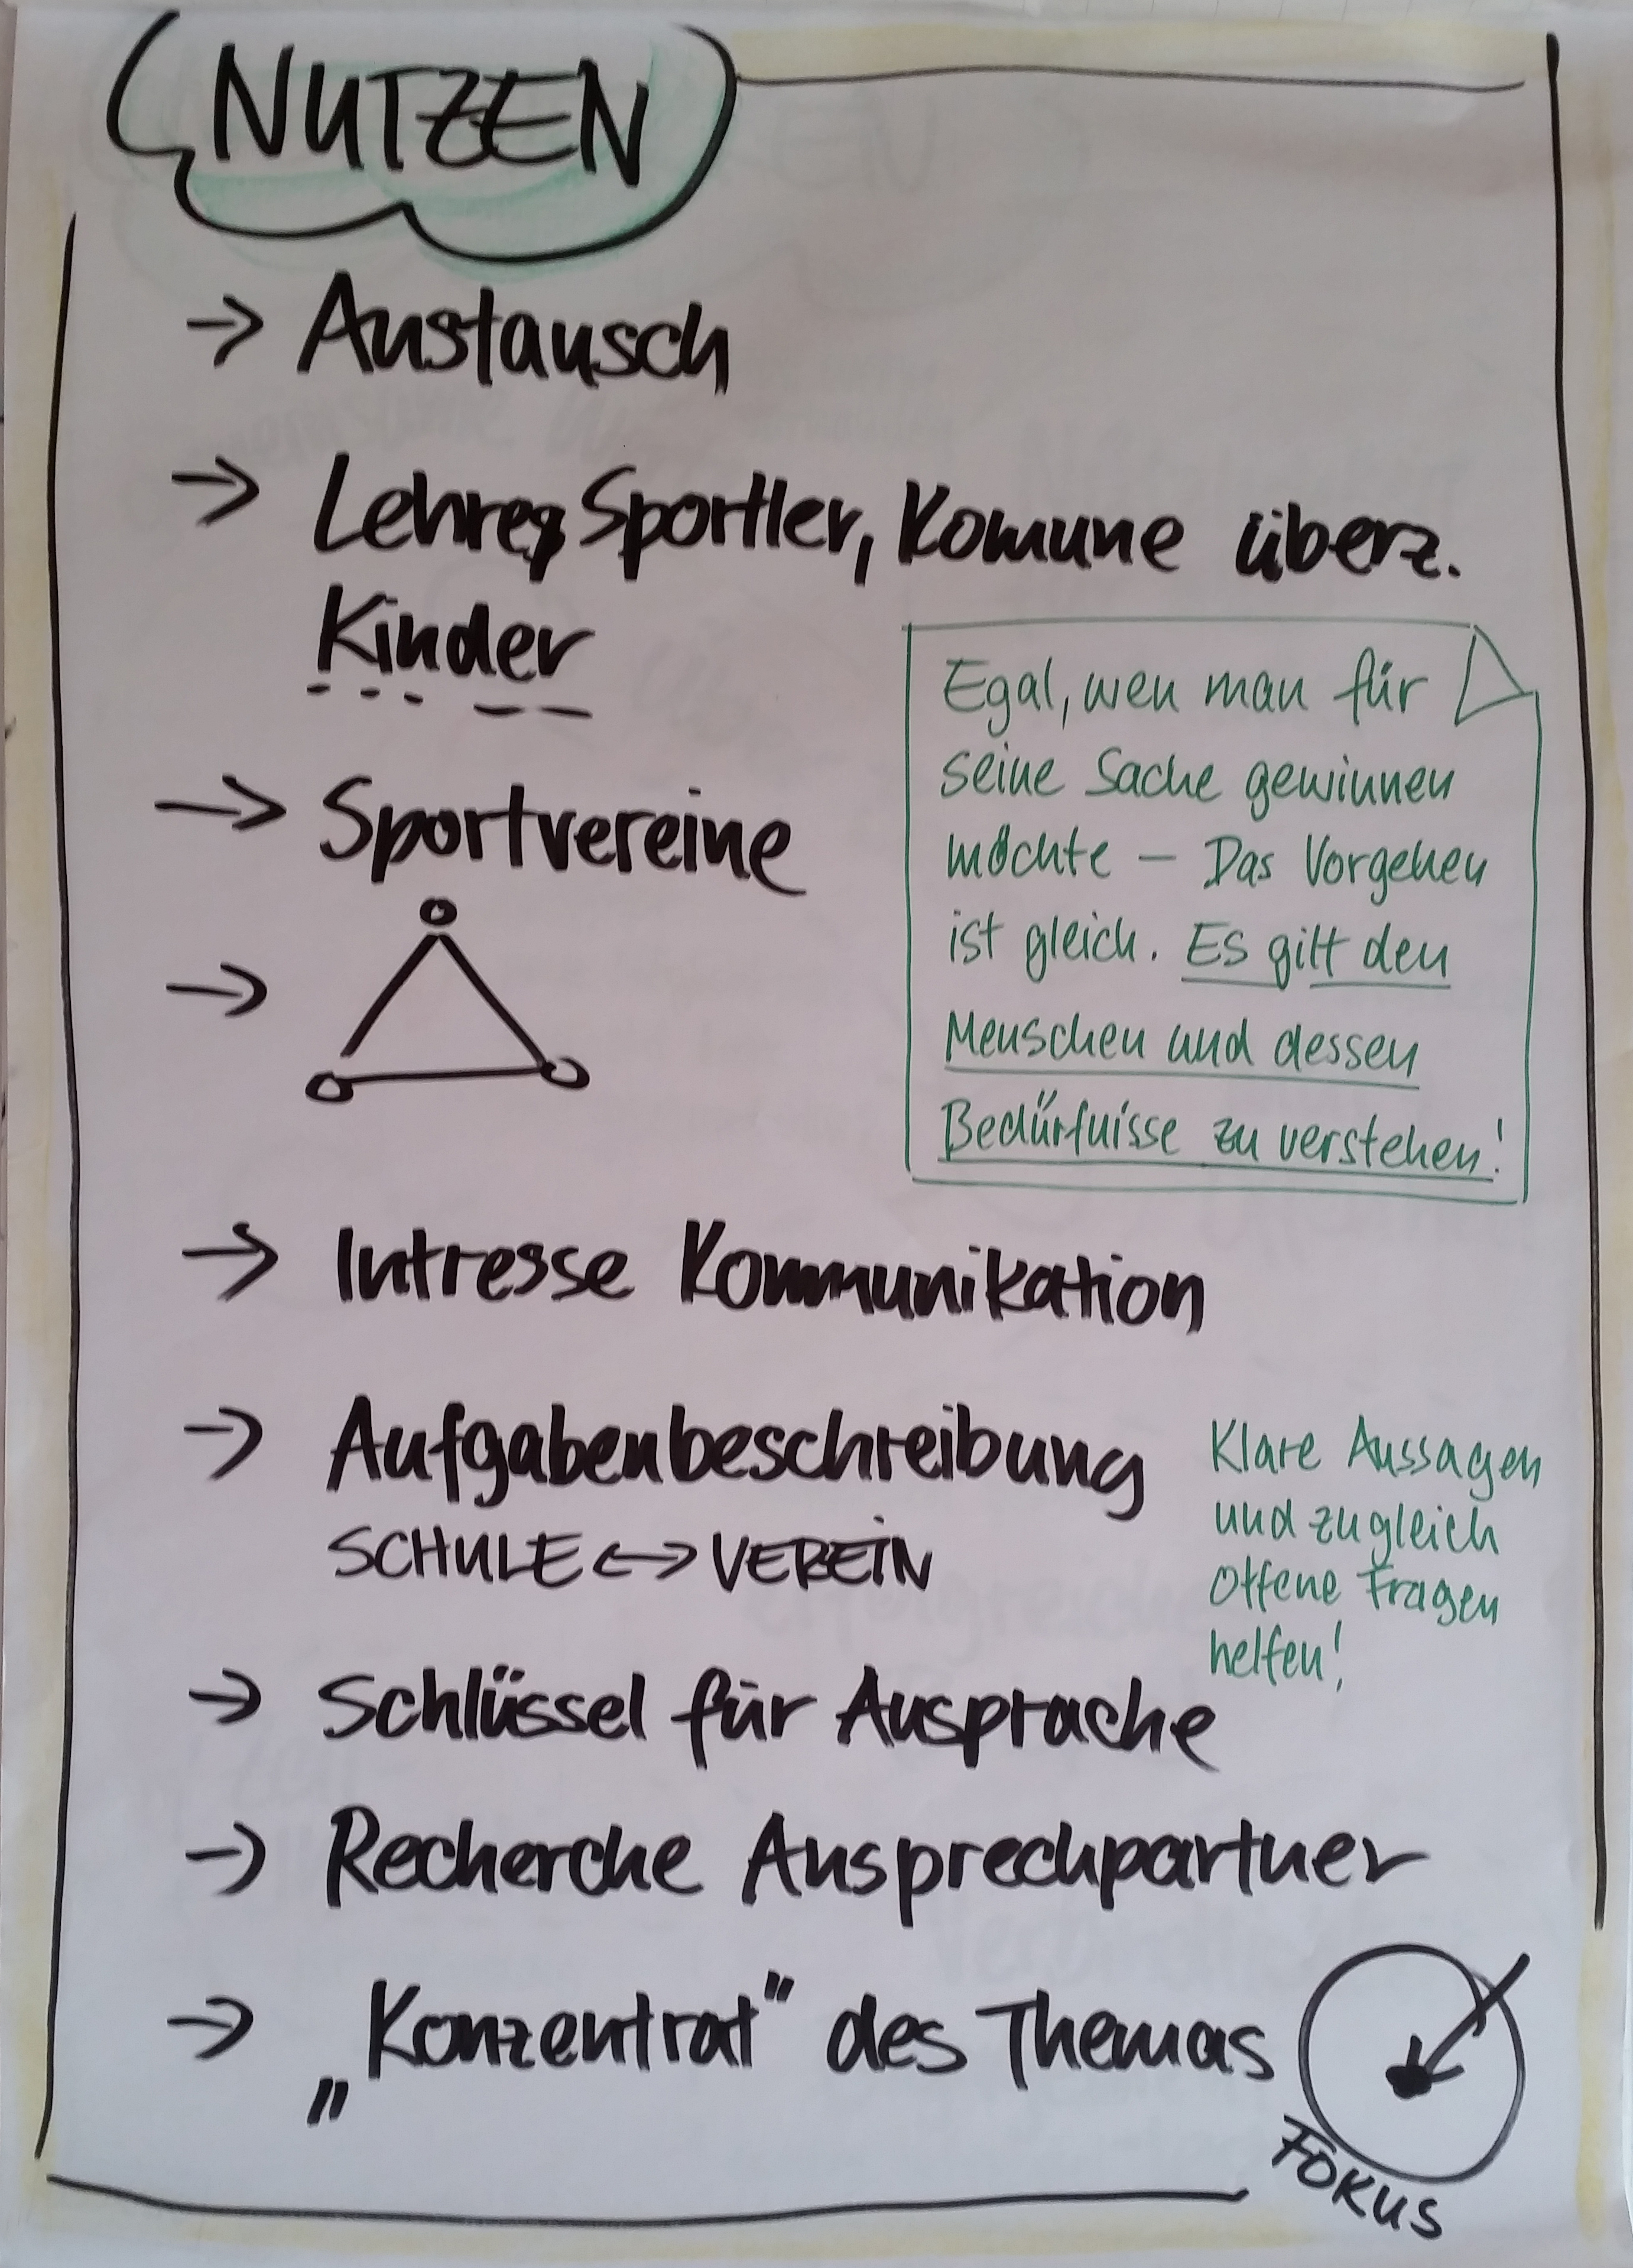 NUTZEN
→ Austausch
→ Lehrer, Sportler, Komune überz.
Kinder
→ Sportvereine
→
Egal, wen man für
seine Sache gewinnen
möchte – Das Vorgehen
ist gleich. Es gilt den
Menschen und dessen
Bedürfnisse zu verstehen!
→ Intresse Kommunikation
→ Aufgabenbeschreibung
SCHULE ↔ VEREIN
Klare Aussagen
und zugleich
offene Fragen
helfen!
→ Schlüssel für Ansprache
→ Recherche Ansprechpartner
→ „Konzentrat" des Themas
FOKUS